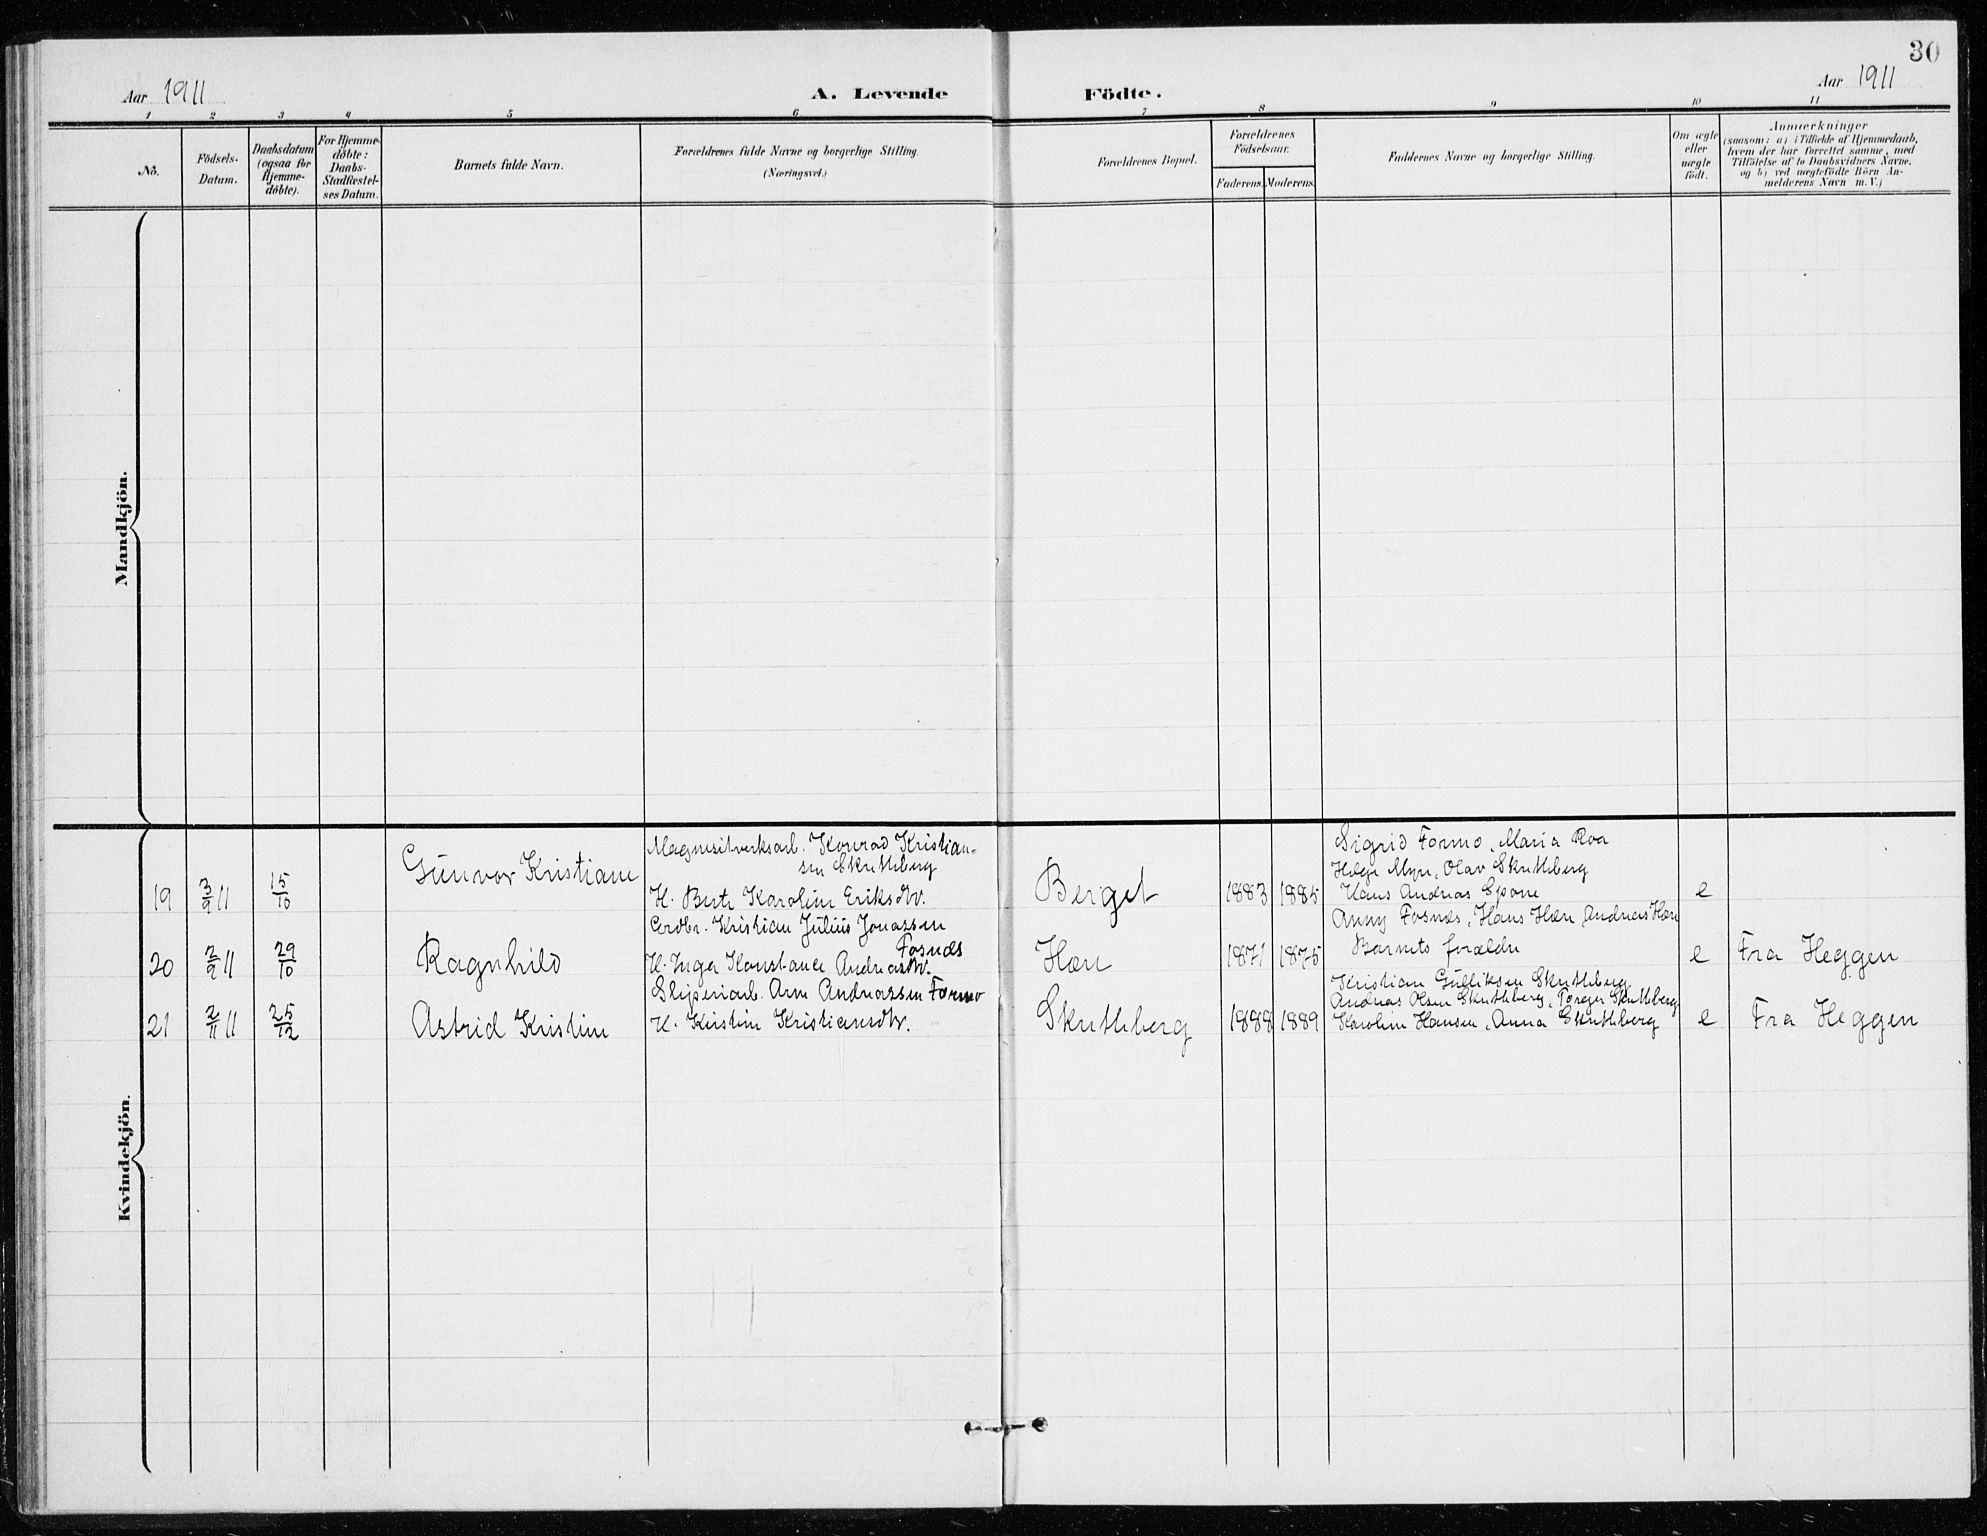 30
Aar 1911
A. Levende Födte.
Aar 1911
1 2 3 4 5 6 7 8 9 10 11
No.
Födsels-
Datum.
Daabsdatum
(ogsaa for
Hjemme-
döbte).
For Hjemme-
döbte:
Daabs-
Stadfæstel-
ses Datum.
Barnets fulde Navn.
Forældrenes fulde Navne og borgerlige Stilling.
(Næringsvei.)
Forældrenes Bopæl.
Forældrenes
Födselsaar.
Faderens. Moderens.
Faddernes Navne og borgerlige Stilling.
Om ægte
eller
uægte
födt.
Anmærkninger
(saasom: a) i Tilfælde af Hjemmedaab,
hvem der har forrettet samme, med
Tilföielse af to Daabsvidners Navne.
og b) ved uægtefödte Börn An-
melderens Navn m. V.)
Mandkjön.
Kvindekjön.
19
3/9 11
15/10
Gunvor Kristiane
Magnesitverksarb. Konrad Kristian-
sen Skuthberg
H. Berte Karoline Eriksdtr.
Berget
1883
1885
Sigrid Formo, Maria Roa
Helge Myre, Olav Skuthberg
Hans Andreas Spone
e
20
2/9 11
29/10
Ragnhild
Grdbr. Kristian Julius Jonassen
Fosnæs
H. Inga Konstance Andreasdtr.
Hæn
1871
1875
Anny Fosnæs, Hans Hæn, Andreas Hæn
Barnets forældre
e
Fra Heggen
21
2/11 11
25/12
Astrid Kristine
Sliperiarb. Arne Andreassen Formo
H. Kirstine Kristiansdtr.
Skuthberg
1888
1889
Kristian Gulliksen Skuthberg
Andreas Olsen Skuthberg, Torger Skuthberg
Karoline Hansen, Anna Skuthberg
e
Fra Heggen